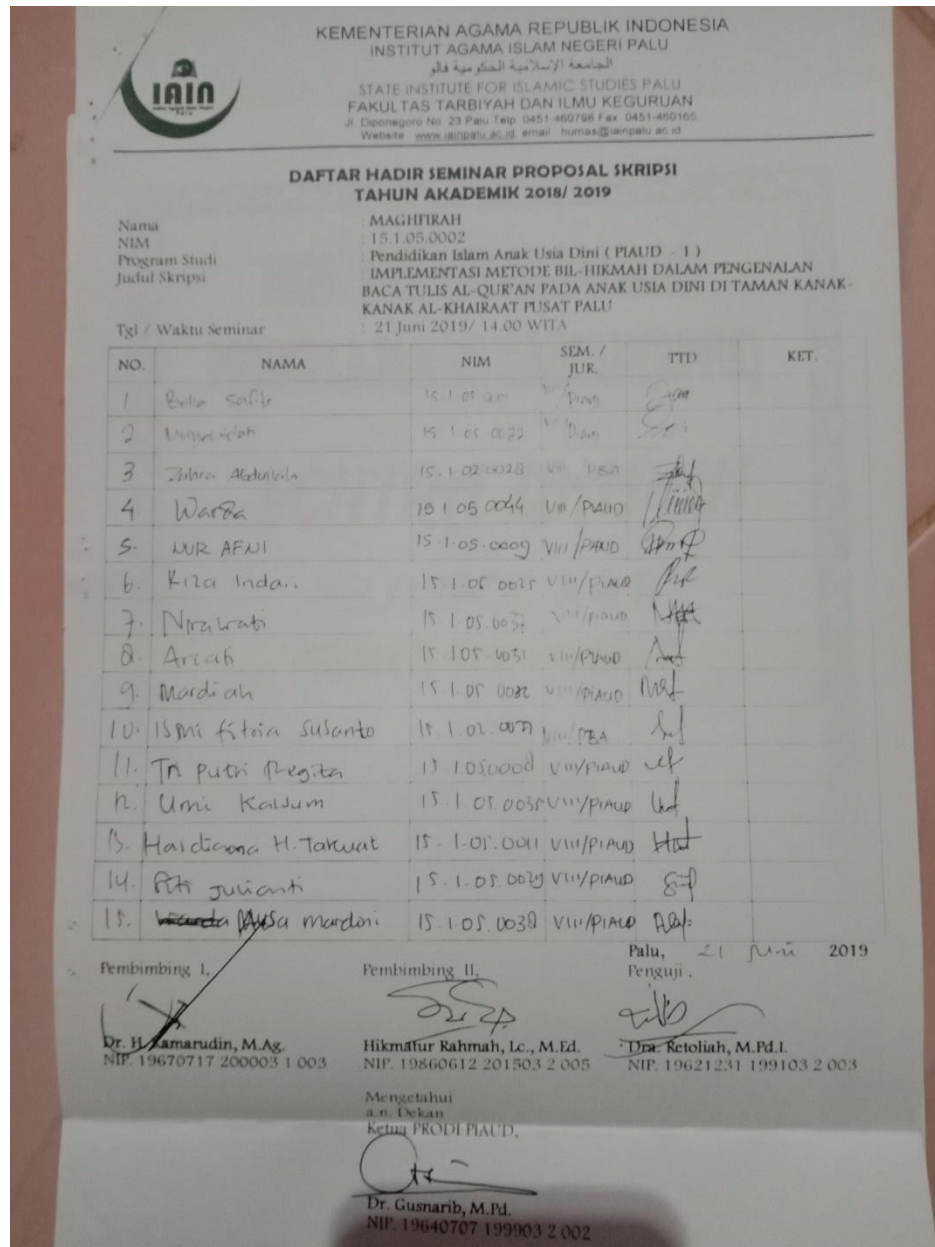 KEMENTERIAN AGAMA REPUBLIK INDONESIA
INSTITUT AGAMA ISLAM NEGERI PALU
الجامعة الإسلامية الحكومية فالو
STATE INSTITUTE FOR ISLAMIC STUDIES PALU
FAKULTAS TARBIYAH DAN ILMU KEGURUAN
Jl. Diponegoro No. 23 Palu Telp. 0451-460798 Fax. 0451-460165
Website : www.iainpalu.ac.id, email : humas@iainpalu.ac.id
IAIN
DAFTAR HADIR SEMINAR PROPOSAL SKRIPSI
TAHUN AKADEMIK 2018/ 2019
Nama : MAGHFIRAH
NIM : 15.1.05.0002
Program Studi : Pendidikan Islam Anak Usia Dini ( PIAUD - 1 )
Judul Skripsi : IMPLEMENTASI METODE BIL-HIKMAH DALAM PENGENALAN
BACA TULIS AL-QUR'AN PADA ANAK USIA DINI DI TAMAN KANAK-
KANAK AL-KHAIRAAT PUSAT PALU
Tgl / Waktu Seminar : 21 Juni 2019/ 14.00 WITA
NO. NAMA NIM SEM. / JUR. TTD KET.
1
2 15.1.05.0022
3 Zahra 15.1.02.0028 VIII PBA
4 Warda 15.1.05.0044 VIII/PIAUD
5. NUR AFNI 15.1.05.0009 VIII/PIAUD
6. Riza Indari 15.1.05.0025 VIII/PIAUD
7. Nirawati 15.1.05.0037 VIII/PIAUD
8. 15.1.05.0031 VIII/PIAUD
9. Mardiah 15.1.05.0082 VIII/PIAUD
10. ISmi fitria Susanto 15.1.02 VIII/PBA
11. Tri Putri Regita VIII/PIAUD
12. Umi Kalsum 15.1.05.0035 VIII/PIAUD
13. H. Takwat 15.1.05.0011 VIII/PIAUD
14. Siti Julianti 15.1.05.0029 VIII/PIAUD
15. Musa mardini 15.1.05.0038 VIII/PIAUD
Palu, 21 Juni 2019
Pembimbing I, Pembimbing II, Penguji ,
Dr. H. Kamarudin, M.Ag. Hikmatur Rahmah, Lc., M.Ed. Dra. Retoliah, M.Pd.I.
NIP. 19670717 200003 1 003 NIP. 19860612 201503 2 005 NIP. 19621231 199103 2 003
Mengetahui
a.n. Dekan
Ketua PRODI PIAUD,
Dr. Gusnarib, M.Pd.
NIP. 19640707 199903 2 002